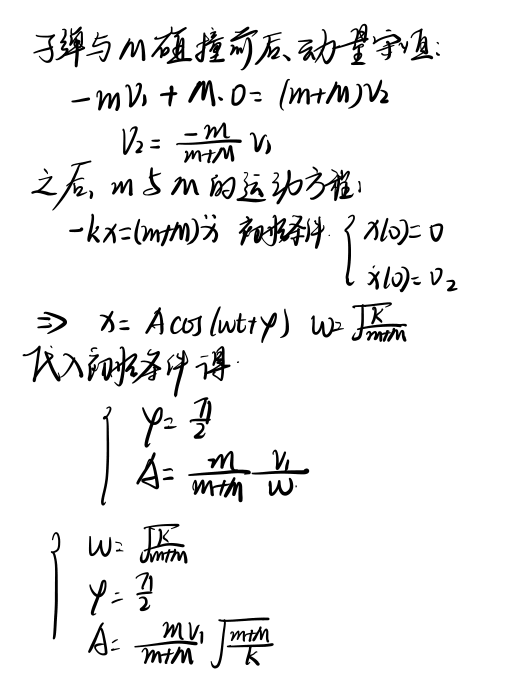 子弹与M碰撞前后、动量守恒:
-mv₁ + M·0 = (m+M)v₂
v₂ = \frac{-m}{m+M} v₁
之后、m与M的运动方程:
-kx=(m+M)ẍ 初始条件 { x(0)=0
ẋ(0)=v₂
⇒ x= A cos(ωt+φ) ω=\sqrt{\frac{k}{m+M}}
代入初始条件得
{ φ= \frac{π}{2}
A= \frac{m}{m+M} \frac{v₁}{ω}
{ ω= \sqrt{\frac{k}{m+M}}
φ= \frac{π}{2}
A= \frac{mv₁}{m+M} \sqrt{\frac{m+M}{k}}